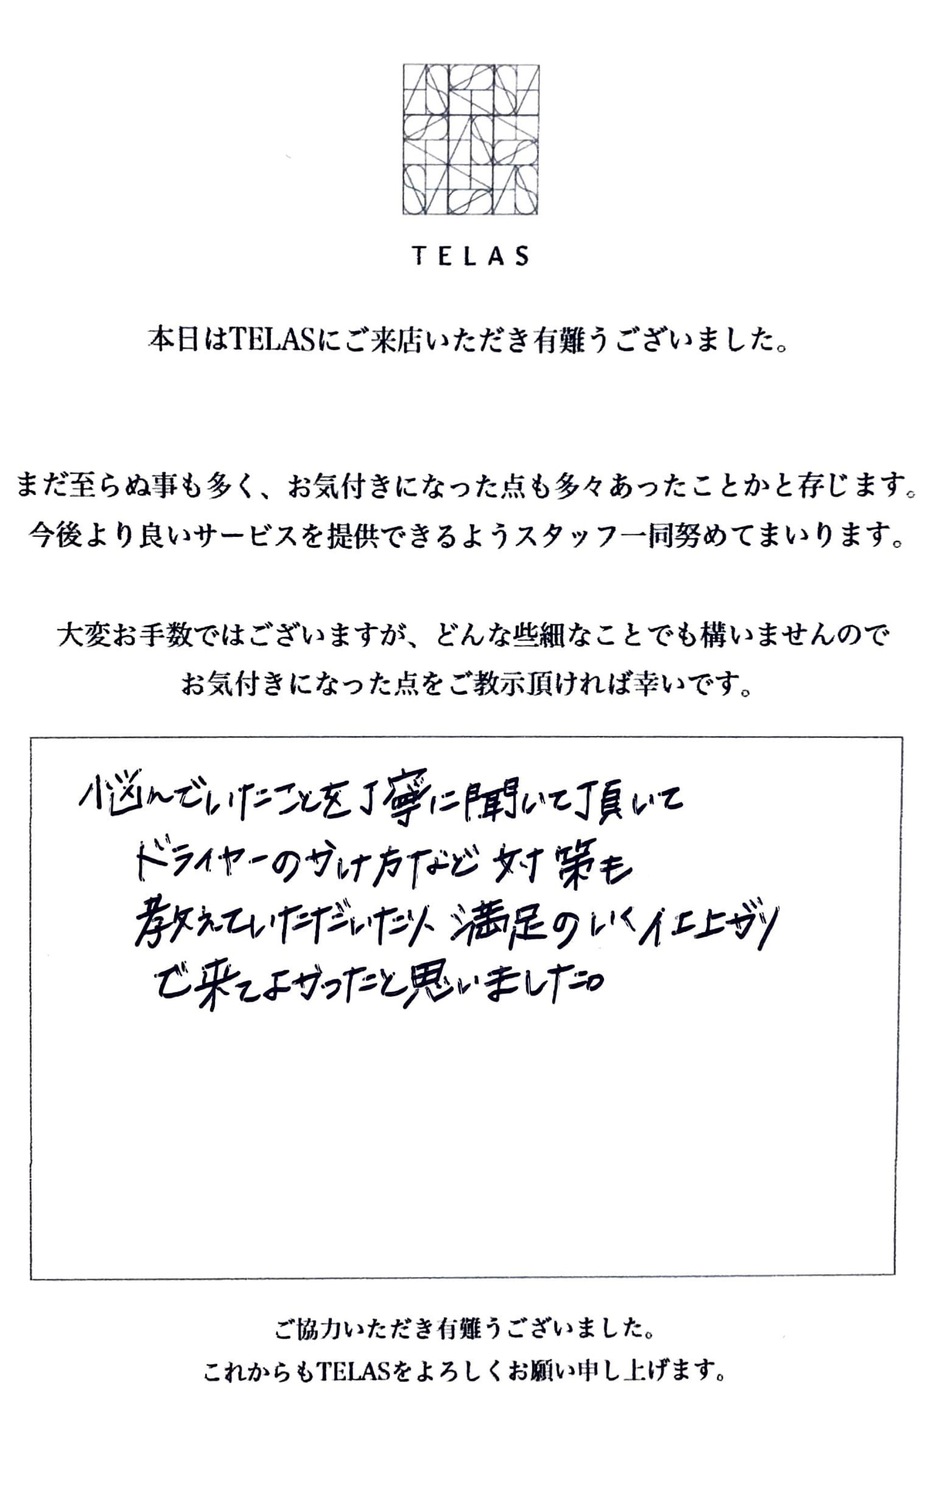 TELAS
本日はTELASにご来店いただき有難うございました。
まだ至らぬ事も多く、お気付きになった点も多々あったことかと存じます。
今後より良いサービスを提供できるようスタッフ一同努めてまいります。
大変お手数ではございますが、どんな些細なことでも構いませんので
お気付きになった点をご教示頂ければ幸いです。
悩んでいたことを丁寧に聞いて頂いて
ドライヤーのかけ方など対策も
教えていただいたり、満足のいく仕上がり
で来てよかったと思いました。
ご協力いただき有難うございました。
これからもTELASをよろしくお願い申し上げます。